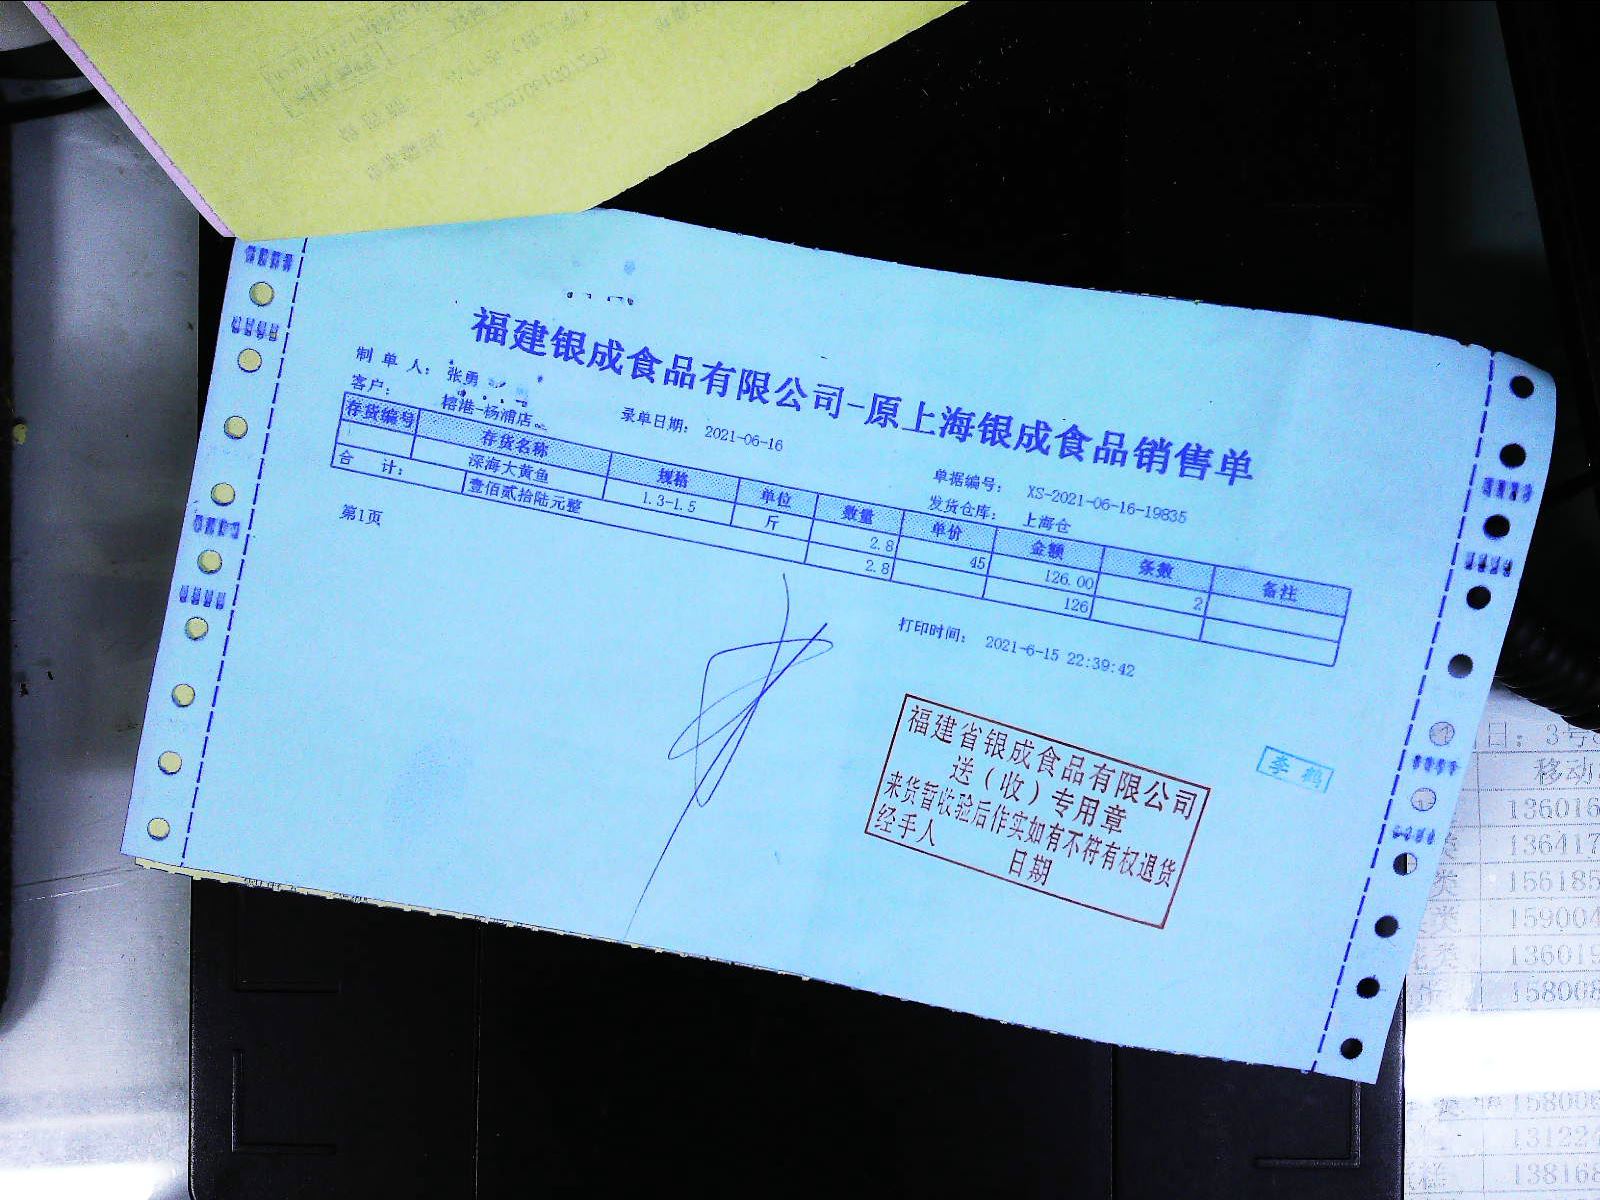 福建银成食品有限公司-原上海银成食品销售单
制 单 人： 张勇
客户： 榕港-杨浦店
录单日期： 2021-06-16
单据编号： XS-2021-06-16-19835
发货仓库： 上海仓
存货编号 存货名称 规格 单位 数量 单价 金额 条数 备注
深海大黄鱼 1.3-1.5 斤 2.8 45 126.00 2
合 计： 壹佰贰拾陆元整 2.8 126
第1页
打印时间： 2021-6-15 22:39:42
福建省银成食品有限公司
送（收）专用章
来货暂收验后作实如有不符有权退货
经手人 日期
李 鹤
日：3号
移动
136016
136417
类 156185
159004
类 136019
158008
158006
131224
138168